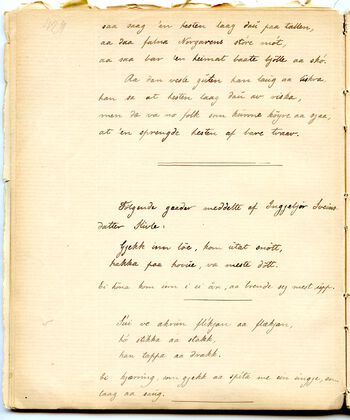 saa saag 'en hesten laag dau paa tallen,
aa daa falna Norjarens store mot,
aa saa bar 'en heimat baate bjølle aa skó.
Aa den vesle guten han laug aa
han sa at hesten laag dau av
men dæ va no folk som kunne høyre aa sjaa,
at 'en sprengde hesten af bare
Følgende gaader meddelte af Ingjebjør Sveins-
datter :
Gjekk inn löe, kom utat snött,
hakka paa hovue, va meste dött.
bi kona kom inn i ei aar, aa brende seg mest ipp.
ve flikjan aa flakjan,
hó stikka aa stakk,
han tappa aa drakk.
bi kjærring, inn gjekk aa me ein
laag aa saug.